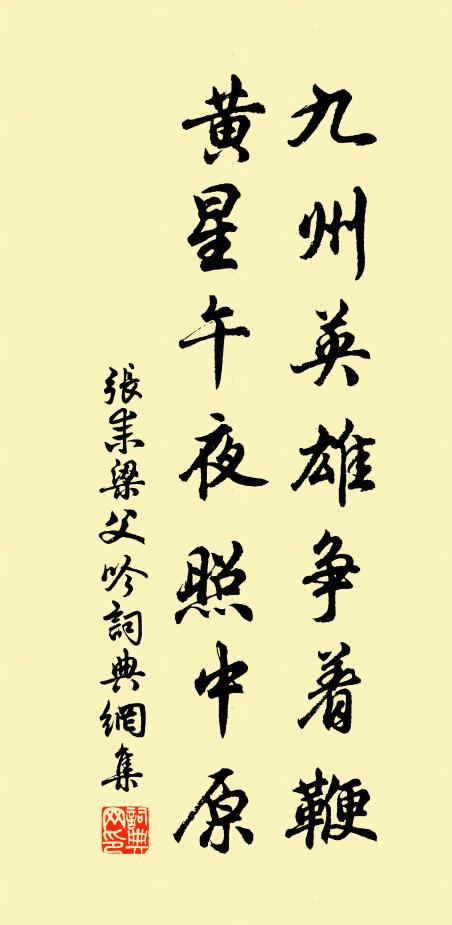 九州英雄争着鞭
黄星午夜照中原
張耒梁父吟詞典網集
詞典网印